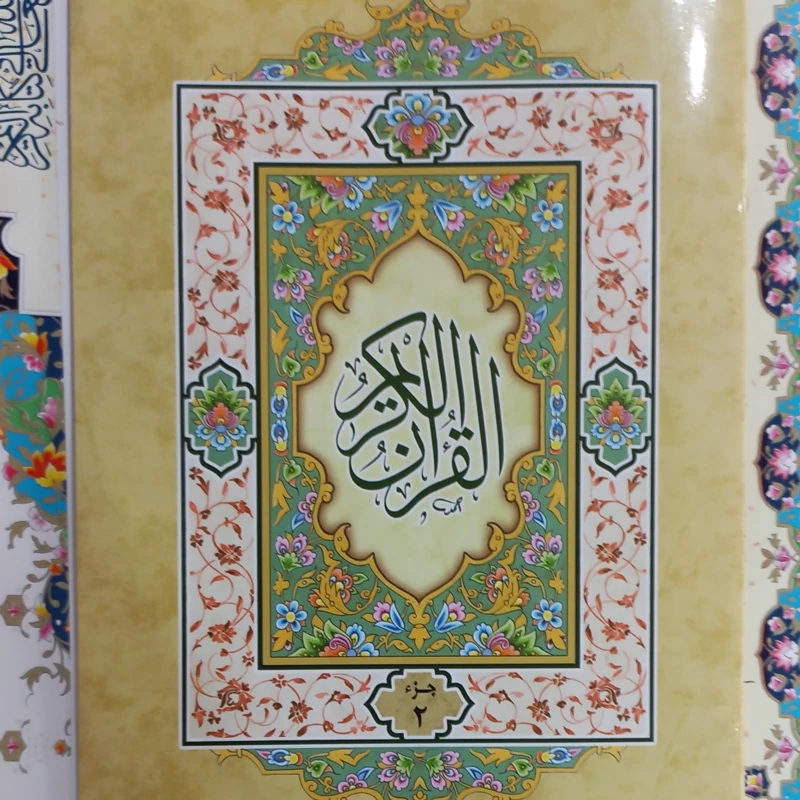 القرآن الكريم
جزء
٢